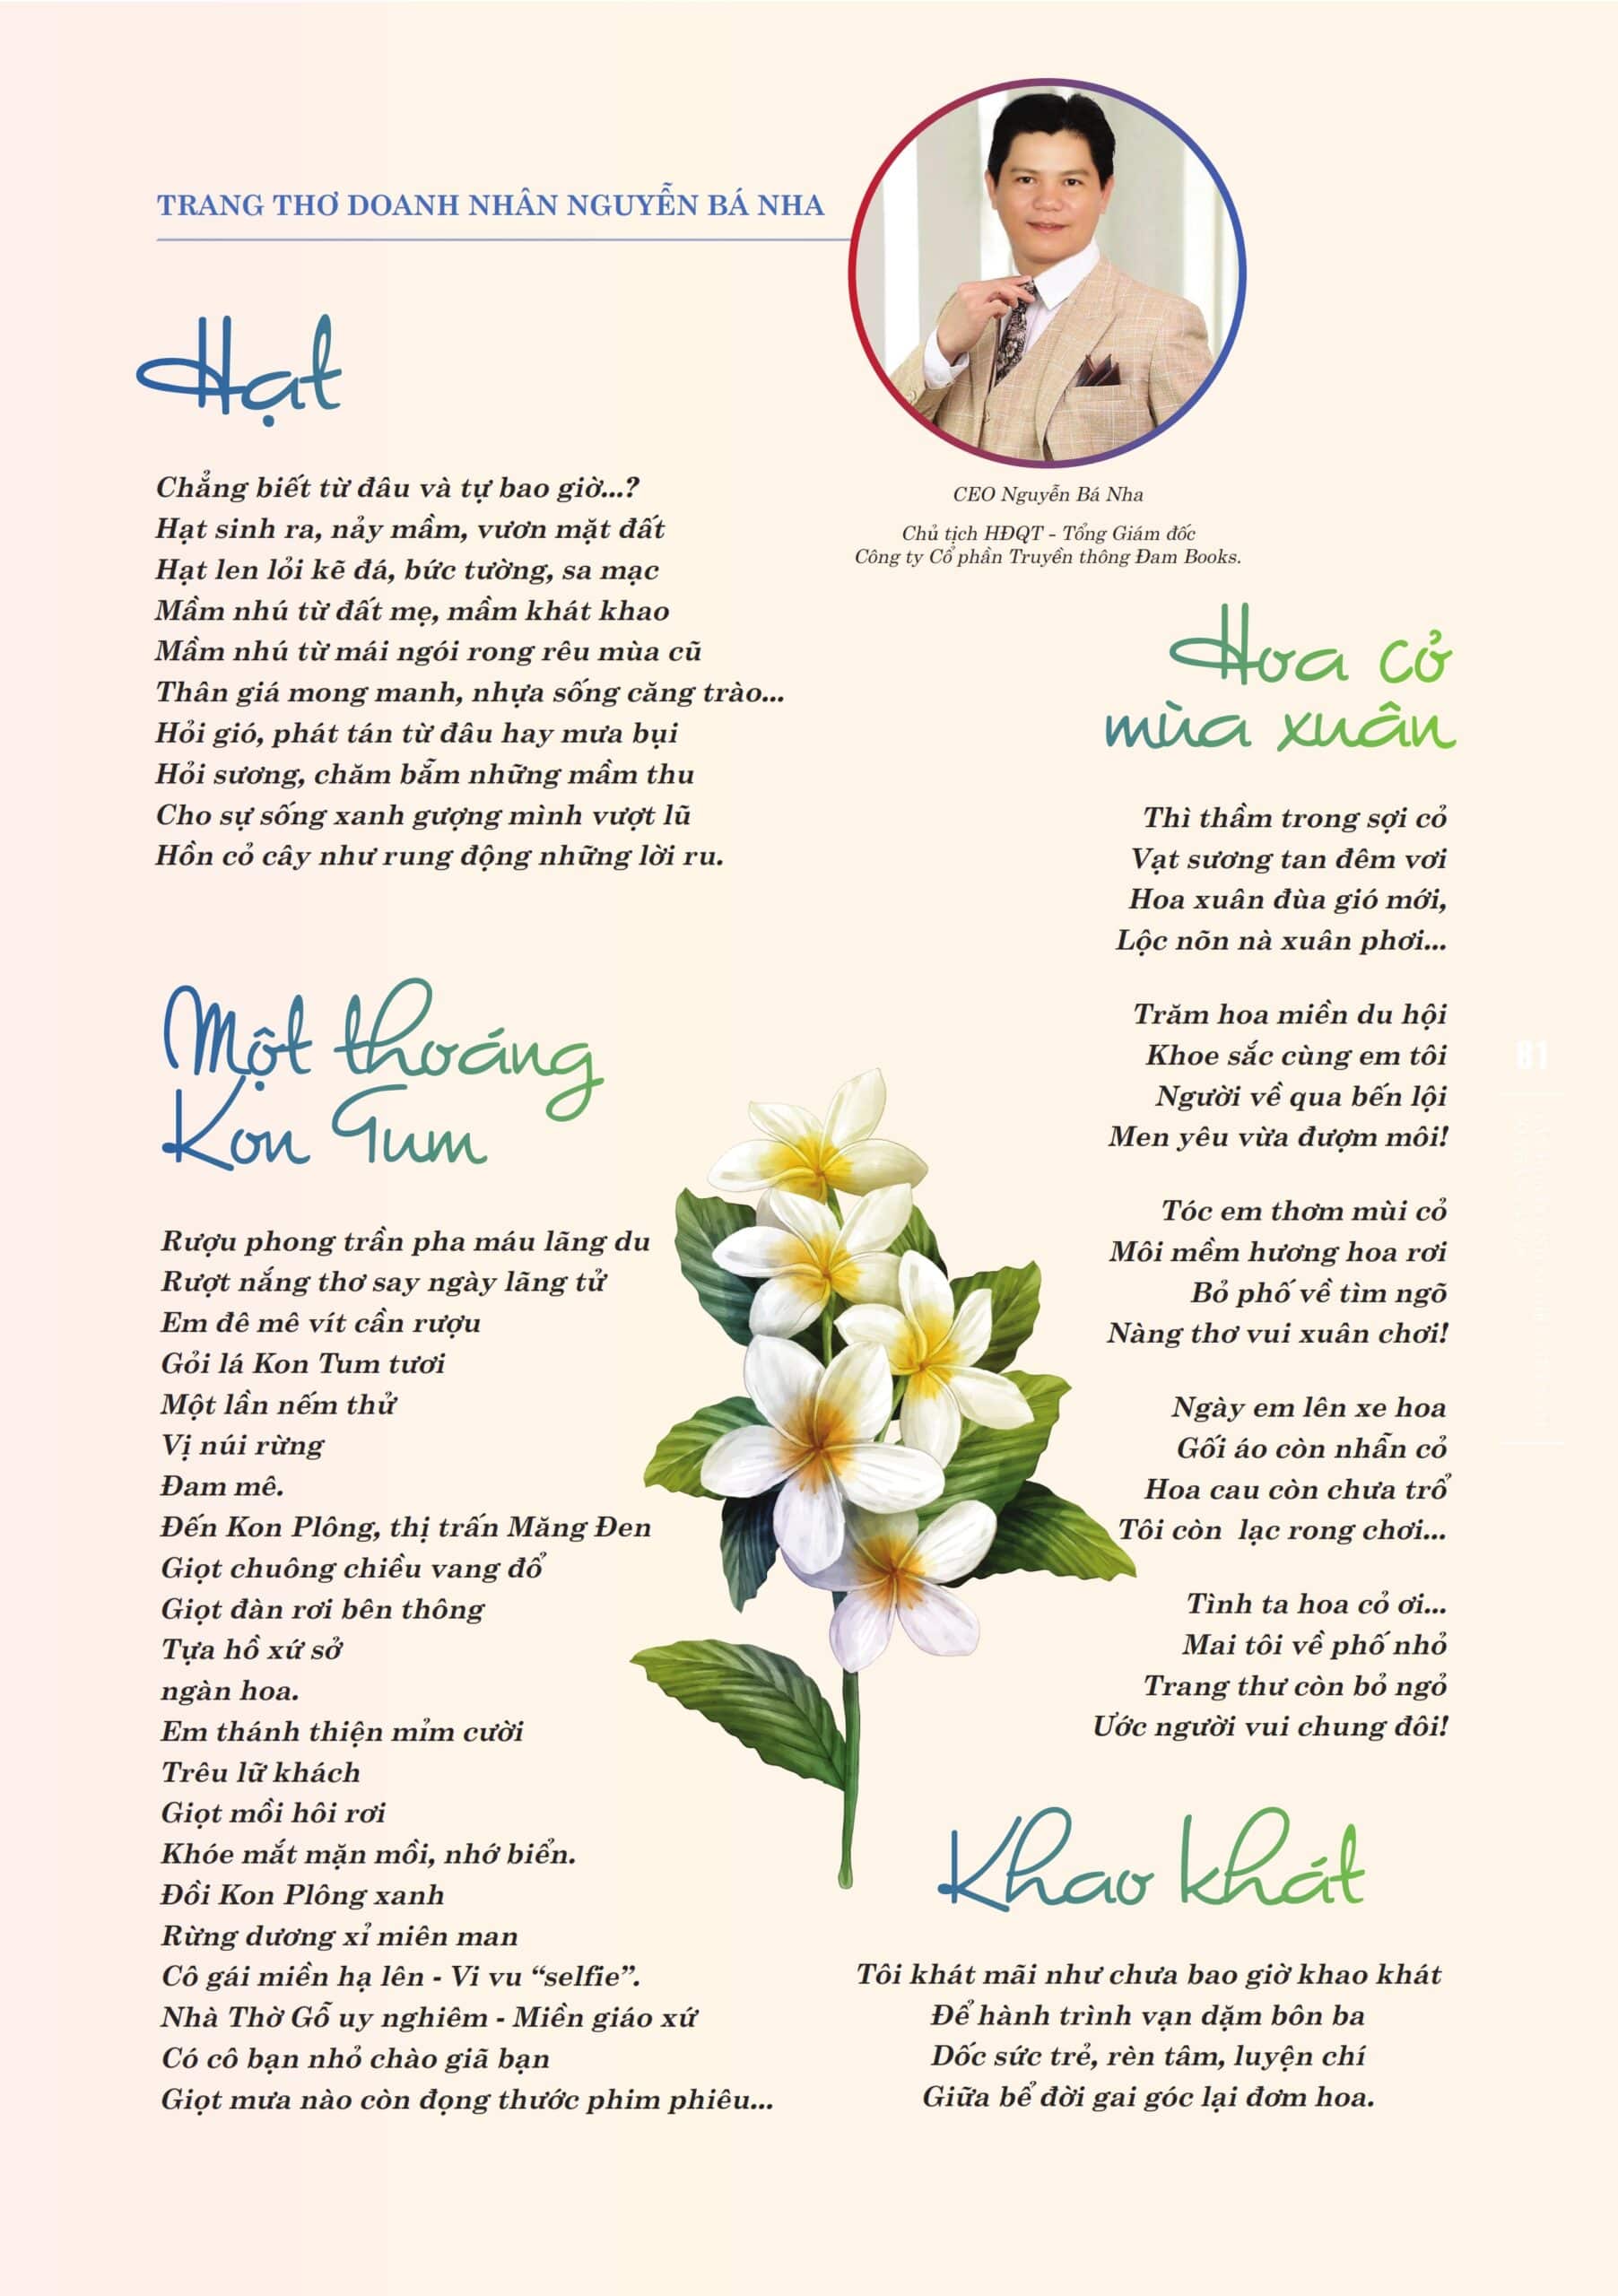 TRANG THƠ DOANH NHÂN NGUYỄN BÁ NHA
CEO Nguyễn Bá Nha
Chủ tịch HĐQT - Tổng Giám đốc
Công ty Cổ phần Truyền thông Đam Books.
Hạt
Chẳng biết từ đâu và tự bao giờ...?
Hạt sinh ra, nảy mầm, vươn mặt đất
Hạt len lỏi kẽ đá, bức tường, sa mạc
Mầm nhú từ đất mẹ, mầm khát khao
Mầm nhú từ mái ngói rong rêu mùa cũ
Thân giá mong manh, nhựa sống căng trào...
Hỏi gió, phát tán từ đâu hay mưa bụi
Hỏi sương, chăm bẵm những mầm thu
Cho sự sống xanh gượng mình vượt lũ
Hồn cỏ cây như rung động những lời ru.
Một thoáng
Kon Tum
Rượu phong trần pha máu lãng du
Rượt nắng thơ say ngày lãng tử
Em đê mê vít cần rượu
Gỏi lá Kon Tum tươi
Một lần nếm thử
Vị núi rừng
Đam mê.
Đến Kon Plông, thị trấn Măng Đen
Giọt chuông chiều vang đổ
Giọt đàn rơi bên thông
Tựa hồ xứ sở
ngàn hoa.
Em thánh thiện mỉm cười
Trêu lữ khách
Giọt mồi hôi rơi
Khóe mắt mặn mồi, nhớ biển.
Đồi Kon Plông xanh
Rừng dương xỉ miên man
Cô gái miền hạ lên - Vi vu “selfie”.
Nhà Thờ Gỗ uy nghiêm - Miền giáo xứ
Có cô bạn nhỏ chào giã bạn
Giọt mưa nào còn đọng thước phim phiêu...
Hoa cỏ
mùa xuân
Thì thầm trong sợi cỏ
Vạt sương tan đêm vơi
Hoa xuân đùa gió mới,
Lộc nõn nà xuân phơi...
Trăm hoa miền du hội
Khoe sắc cùng em tôi
Người về qua bến lội
Men yêu vừa đượm môi!
Tóc em thơm mùi cỏ
Môi mềm hương hoa rơi
Bỏ phố về tìm ngõ
Nàng thơ vui xuân chơi!
Ngày em lên xe hoa
Gối áo còn nhẫn cỏ
Hoa cau còn chưa trổ
Tôi còn  lạc rong chơi...
Tình ta hoa cỏ ơi...
Mai tôi về phố nhỏ
Trang thư còn bỏ ngỏ
Ước người vui chung đôi!
Khao khát
Tôi khát mãi như chưa bao giờ khao khát
Để hành trình vạn dặm bôn ba
Dốc sức trẻ, rèn tâm, luyện chí
Giữa bể đời gai góc lại đơm hoa.
81